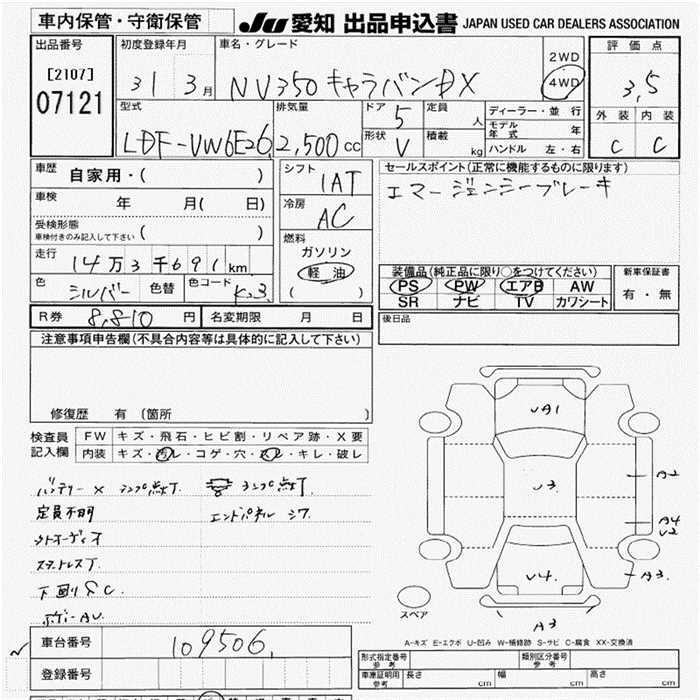 車内保管・守衛保管 JU 愛知 出品申込書 JAPAN USED CAR DEALERS ASSOCIATION
出品番号
[2107]
07121
初度登録年月
31 3月
車名・グレード
NV350 キャラバン DX
2WD
4WD
評価点
3,5
外装 内装
C C
型式
LDF-VW6E26
排気量
2,500 cc
ドア 5
形状 V
定員 人
積載 kg
ディーラー・並行
モデル年式 年
ハンドル 左・右
車歴 自家用・( )
車検 年 月( 日)
受検形態
車検付きのみ記入して下さい ( )
走行 14万3千691km
色 シルバー 色替 色コード K23
シフト
1AT
冷房
AC
燃料
ガソリン
軽油
( )
セールスポイント(正常に機能するものに限ります)
エマージェンシーブレーキ
装備品(純正品に限り○をつけてください)
PS PW エアB AW
SR ナビ TV カワシート
新車保証書
有・無
R券 8,810 円 名変期限 月 日
後日品
注意事項申告欄(不具合内容等は具体的に記入して下さい)
修復歴 有(箇所 )
検査員記入欄
FW キズ・飛石・ヒビ割・リペア跡・X要
内装 キズ・汚レ・コゲ・穴・スレ・キレ・破レ
バッテリー × ランプ点灯 ランプ点灯
定員不明 エンドパネル シワ
ストオーディオ
スタットレス
下回り S C
ボディー AU
UA1
U3
U4
A2
A4
U2
A3
A3
スペア
A-キズ E-エクボ U-凹み W-補修跡 S-サビ C-腐食 XX-交換済
車台番号 109506
登録番号
形式指定番号 参考
類別区分番号 参考
車庫証明用 参考 長さ cm 幅 cm 高さ cm